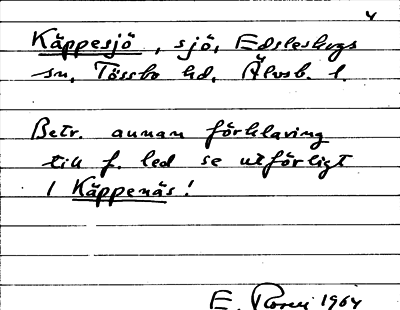 4
Käppesjö, sjö, Edsleskogs
sn, Tössbo hd, Älvsb. l.
Betr. annan förklaring
till f. led se utförligt
i Käppenäs!
E. 1964